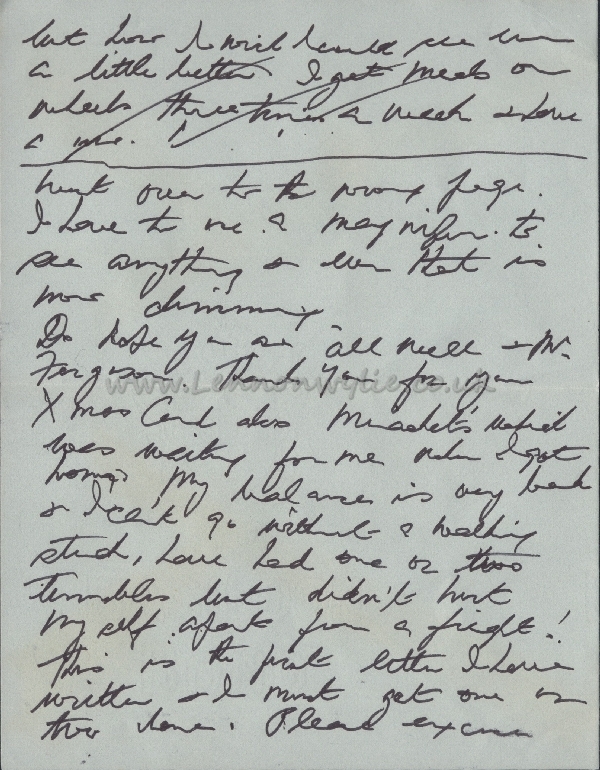 but how I wish I could see
a little better I get meals on
wheels three times a week & have
a
went over to the wrong page.
I have to use a magnifier to
see anything & even that is
now dimming
Do hope you are all well & Mr
Ferguson. Thank you for your
www.Lennonwylie.co.uk
Xmas Card also
was waiting for me when I got
home. My balance is very bad
& I can't go without a walking
stick, have had one or two
tumbles but didn't hurt
myself apart from a fright!
This is the first letter I have
written & I must get one or
two done. Please excuse